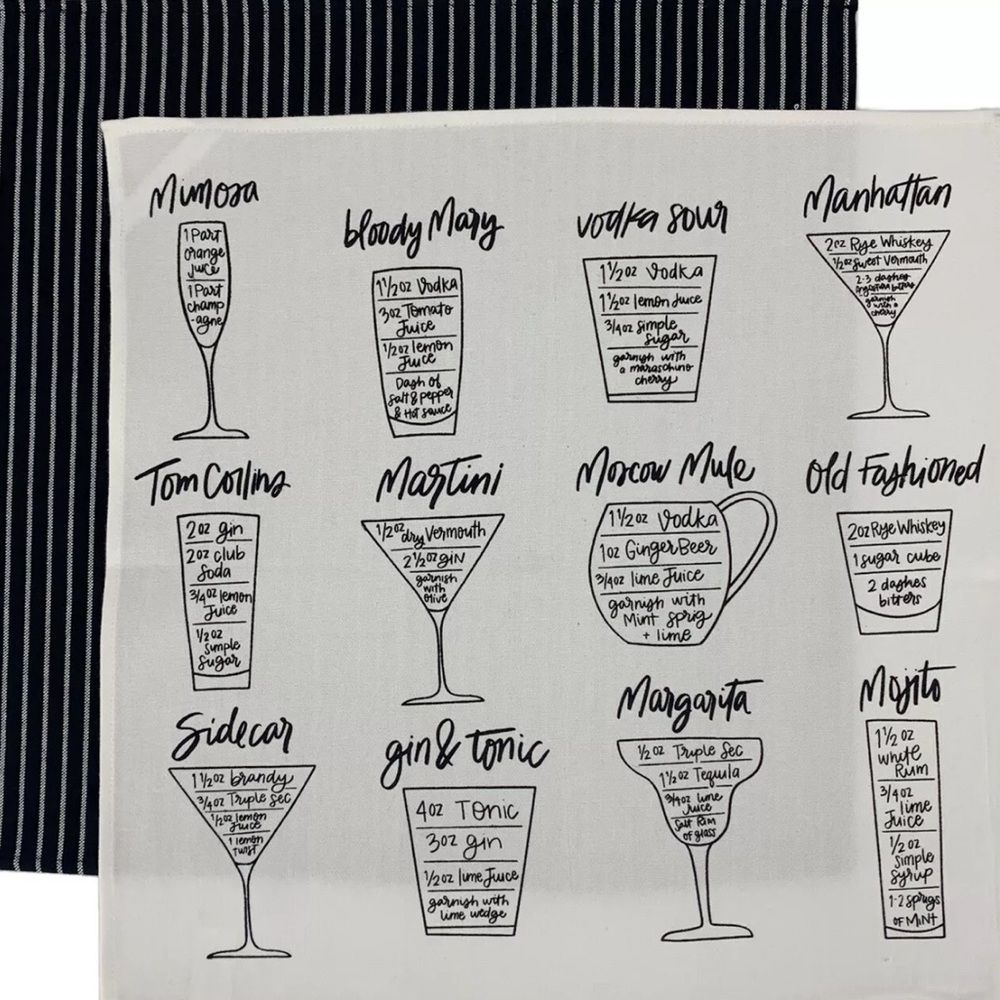 Mimosa
1 Part
orange
juice
1 Part
champ
-agne
bloody Mary
1 1/2 oz Vodka
3oz Tomato
Juice
1/2 oz lemon
Juice
Dash of
Salt & pepper
& Hot sauce
vodka sour
1 1/2 oz Vodka
1 1/2 oz lemon Juice
3/4 oz simple
Sugar
garnish with
a maraschino
cherry
Manhattan
2oz Rye Whiskey
1/2 oz Sweet Vermouth
2-3 dashes
Angostura bitters
garnish
with a
cherry
Tom Collins
2 oz gin
2 oz club
Soda
3/4 oz lemon
Juice
1/2 oz
simple
Sugar
Martini
1/2 oz dry Vermouth
2 1/2 oz gin
garnish
with
olive
Moscow Mule
1 1/2 oz Vodka
1oz Ginger Beer
3/4 oz lime Juice
garnish with
Mint Sprig
+ lime
Old Fashioned
2oz Rye Whiskey
1 sugar cube
2 dashes
bitters
Sidecar
1 1/2 oz brandy
3/4 oz Triple Sec
1/2 oz lemon
Juice
1 lemon
twist
gin & tonic
4oz Tonic
3oz gin
1/2 oz lime Juice
garnish with
lime wedge
Margarita
1/2 oz Triple Sec
1 1/2 oz Tequila
3/4 oz lime
Juice
Salt Rim
of glass
Mojito
1 1/2 oz
white
Rum
3/4 oz
lime
Juice
1/2 oz
simple
syrup
1-2 sprigs
of Mint